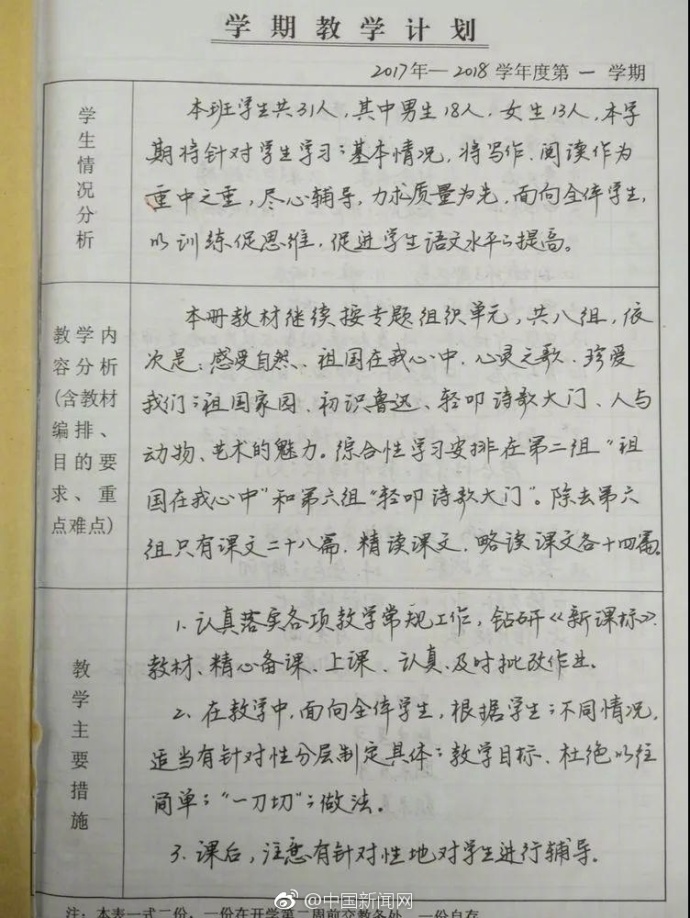 学期教学计划
2017年—2018学年度第一学期
学生情况分析
本班学生共31人，其中男生18人，女生13人，本学
期将针对学生学习的基本情况，将写作、阅读作为
重中之重，尽心辅导，力求质量为先，面向全体学生，
以训练促思维，促进学生语文水平的提高。
教学内
容分析
(含教材
编排、
目的要
求、重
点难点)
本册教材继续按专题组织单元，共八组，依
次是：感受自然、祖国在我心中、心灵之歌、珍爱
我们的祖国家园、初识鲁迅、轻叩诗歌大门、人与
动物、艺术的魅力。综合性学习安排在第二组“祖
国在我心中”和第六组“轻叩诗歌大门”。除去第六
组只有课文二十八篇，精读课文、略读课文各十四篇。
教学主要措施
1、认真落实各项教学常规工作，钻研《新课标》、
教材、精心备课、上课、认真、及时批改作业。
2、在教学中，面向全体学生，根据学生的不同情况，
适当有针对性分层制定具体的教学目标、杜绝以往
简单的“一刀切”的做法。
3、课后，注意有针对性地对学生进行辅导。
注：本表一式二份，一份在开学第二周前交教务处，一份自存
@中国新闻网